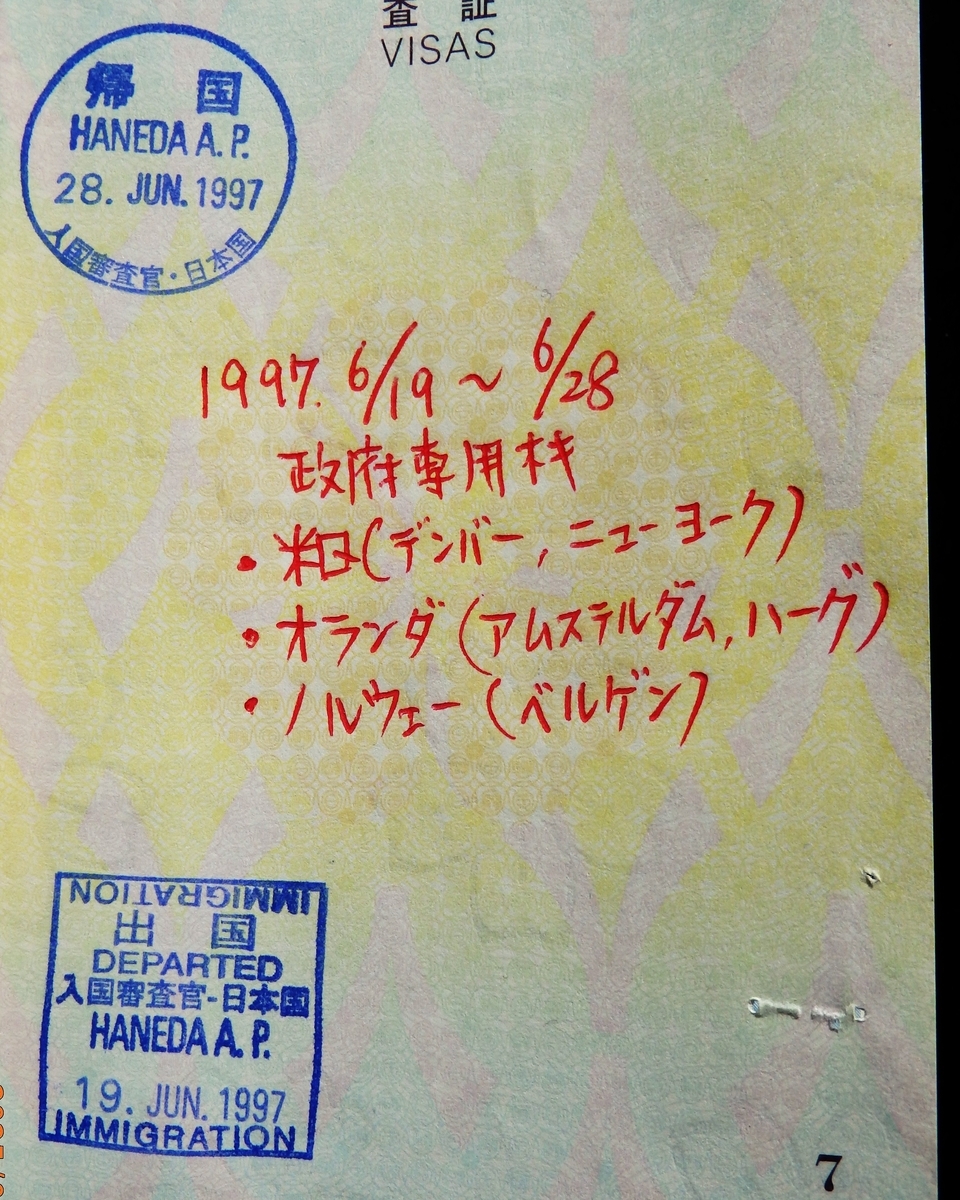 査 証
VISAS
帰 国
HANEDA A. P.
28. JUN. 1997
入国審査官・日本国
1997. 6/19 ~ 6/28
政府専用機
・米国(デンバー, ニューヨーク)
・オランダ(アムステルダム, ハーグ)
・ノルウェー(ベルゲン)
IMMIGRATION
出 国
DEPARTED
入国審査官-日本国
HANEDA A. P.
19. JUN. 1997
IMMIGRATION
7